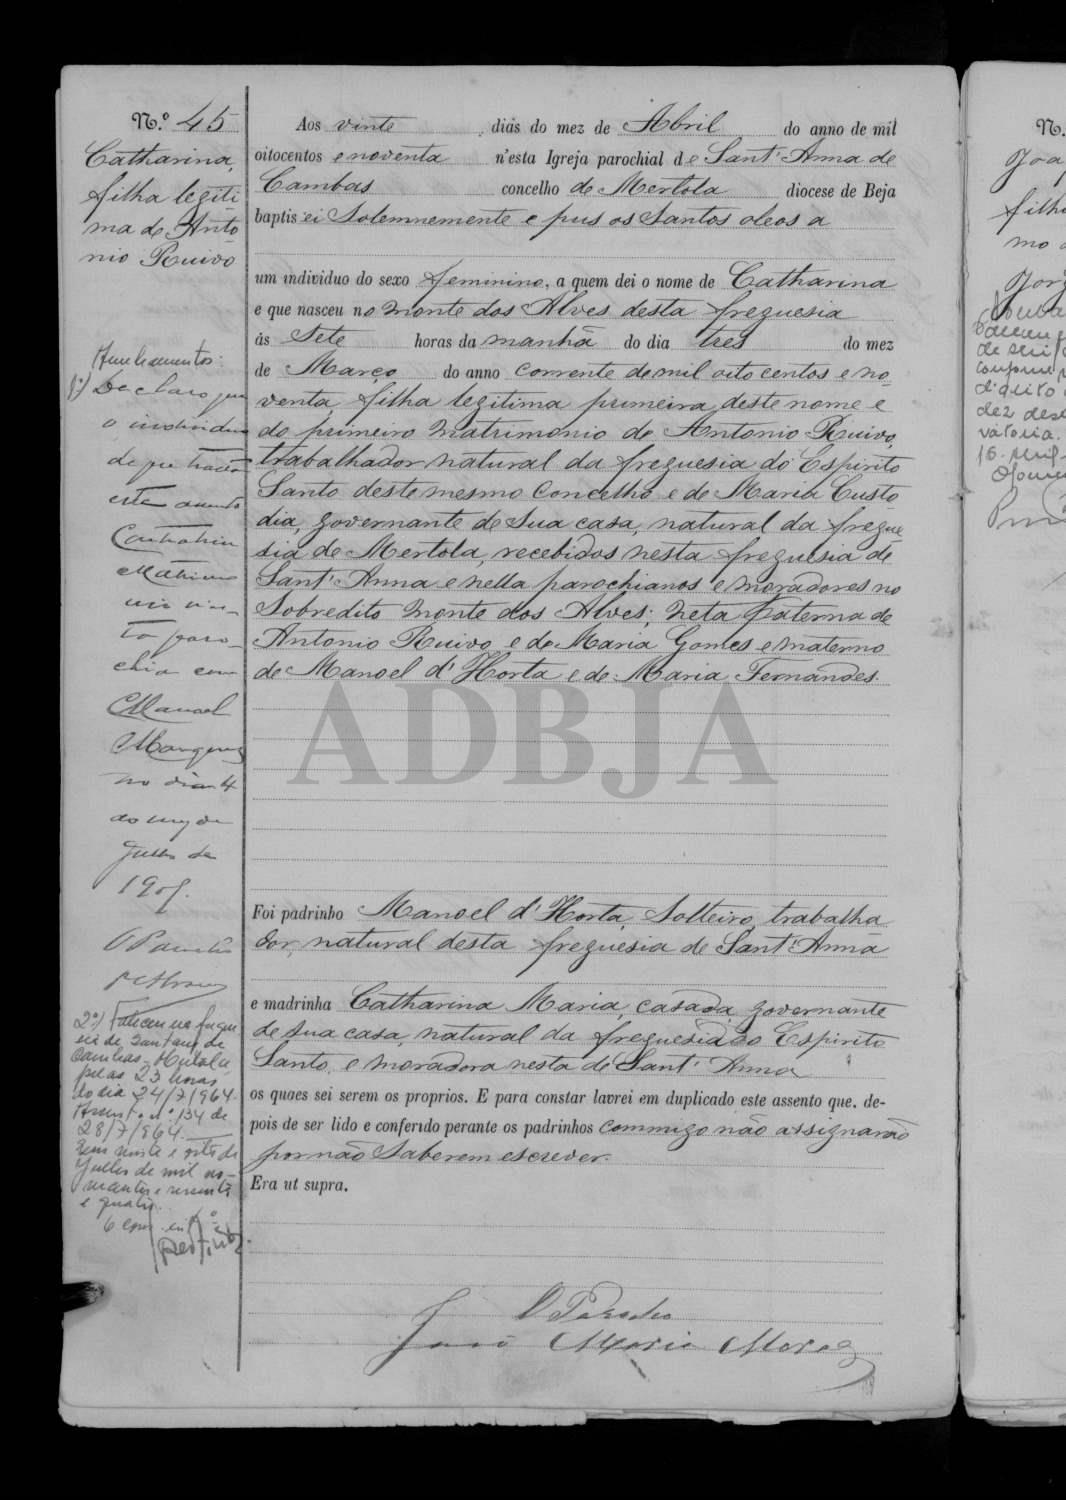 N.º 45
Catharina,
filha legiti
ma de Anto
nio Ruivo
Aos vinte dias do mez de Abril do anno de mil
oitocentos e noventa n'esta Igreja parochial de Sant'Anna de
Cambas concelho de Mertola diocese de Beja
baptisei Solemnemente e pus os Santos oleos a
um individuo do sexo feminino, a quem dei o nome de Catharina
e que nasceu no monte dos Alves desta freguesia
ás Sete horas da manhã do dia tres do mez
de Março do anno corrente de mil oito centos e no
venta, filha legitima primeira deste nome e
do primeiro Matrimonio de Antonio Ruivo,
trabalhador natural da freguesia do Espirito
Santo deste mesmo Concelho e de Maria Custo
dia, governante de sua casa, natural da fregue
sia de Mertola, recebidos nesta freguesia de
Sant'Anna e nella parochianos e moradores no
Sobredito monte dos Alves; neta paterna de
Antonio Ruivo e de Maria Gomes e materno
de Manoel d'Horta e de Maria Fernandes.
ADBJA
Foi padrinho Manoel d'Horta, Solteiro, trabalha
dor, natural desta freguesia de Sant'Anna
e madrinha Catharina Maria, casada, governante
de sua casa, natural da freguesia do Espirito
Santo, e moradora nesta de Sant'Anna
os quaes sei serem os proprios. E para constar lavrei em duplicado este assento que, de-
pois de ser lido e conferido perante os padrinhos commigo não assignarão
por não Saberem escrever.
Era ut supra.
O Parocho
José Maria
1º) Declaro que
o individuo
de que trata
este assento
Contrahiu
Matrimo
nio nes
ta paro
chia com
Manoel
Marques
no dia 4
do mez de
Julho de
190
O Parocho
2º) Faleceu na fregue
sia de Santana de
Cambas - Mertola,
pelas 23 horas
do dia 24/7/964.
Assento nº 134 de
28/7/964.
Em vinte e oito de
Julho de mil no-
vecentos e sessenta
e quatro.
N.
filha
mo
de
dez
16